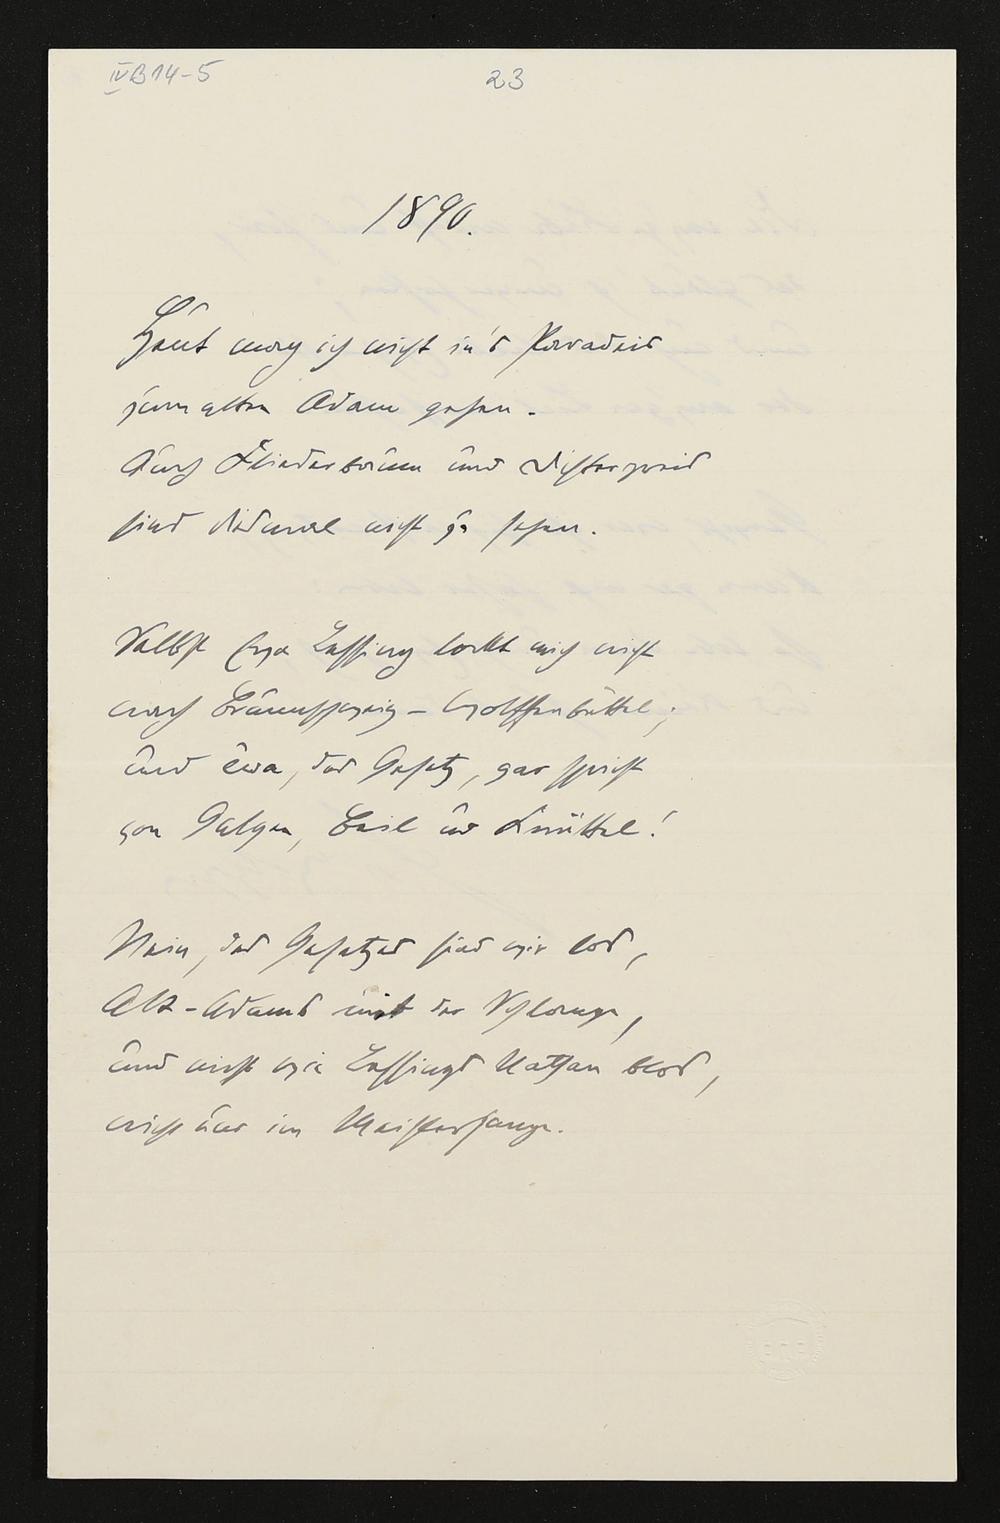 IVB14-5
23
1890.
Heut mag ich nicht in's Paradeis
zum alten Adam gehen.
Auch Fliederbäum und Dichterpreis
sind diesmal nicht zu sehen.
Selbst Lessing lockt mich nicht
nach Braunschweig-Wolffenbüttel;
und êwa, das Gesetz, gar spricht
von Galgen, Beil und Knüttel!
Nein, des Gesetzes sind wir los,
Alt-Adams mit der Schlange,
und nicht wie Lessings Nathan blos,
nicht nur im Meistersange.